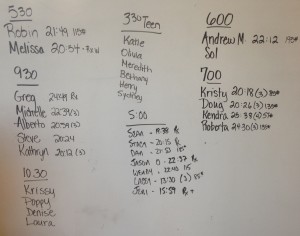 530
Robin 21:49 115#
Melissa 20:54
930
Greg 24:49 Rx
Michelle 22:39(3)
Alberto 20:59(3)
Steve 20:24
Kathryn 20:12(3)
10:30
Krissy
Poppy
Denise
Laura
330 Teen
Katie
Olivia
Meredith
Bethany
Henry
Sydney
5:00
Sean - 19:38 Rx
20:15 Rx
Dan - 21:53 115#
Jason O - 22:37 Rx
Wendy - 22:40 115
13:30 (3) 85#
Jeri - 15:59 Rx
600
Andrew M. 22:12 115#
Sol
700
Kristy 20:18 (3) 85#
Doug 20:26 (3) 135#
Kendra 25:38 (4) 57#
Roberta 24:30 (3) 135#